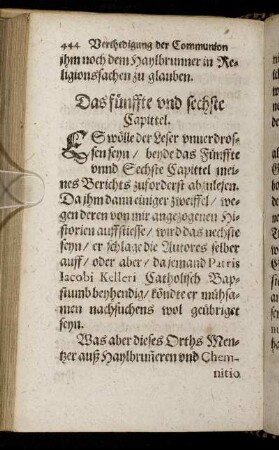 444 Verthedigung der Communion
ihm noch dem Haylbrunner in Re⸗
ligionssachen zu glauben.
Das fünffte vnd sechste
Capittel.
ES wölle der Leser vnuerdros⸗
sen seyn / beyde das Fünffte
vnnd Sechste Capittel mei⸗
nes Berichts zuforderst abzulesen.
Da jhm dann einiger zweiffel / we⸗
gen deren von mir angezogenen Hi⸗
storien auffstiesse / wird das nechste
seyn / er schlage die Autores selber
auff / oder aber / da jemand Patris
Iacobi Kelleri Catholisch Bap⸗
stumb beyhendig / köndte er mühsa⸗
men nachsuchens wol geübriget
seyn.
Was aber dieses Orths Men⸗
tzer auß Haylbruñeren vnd Chem-
nitio